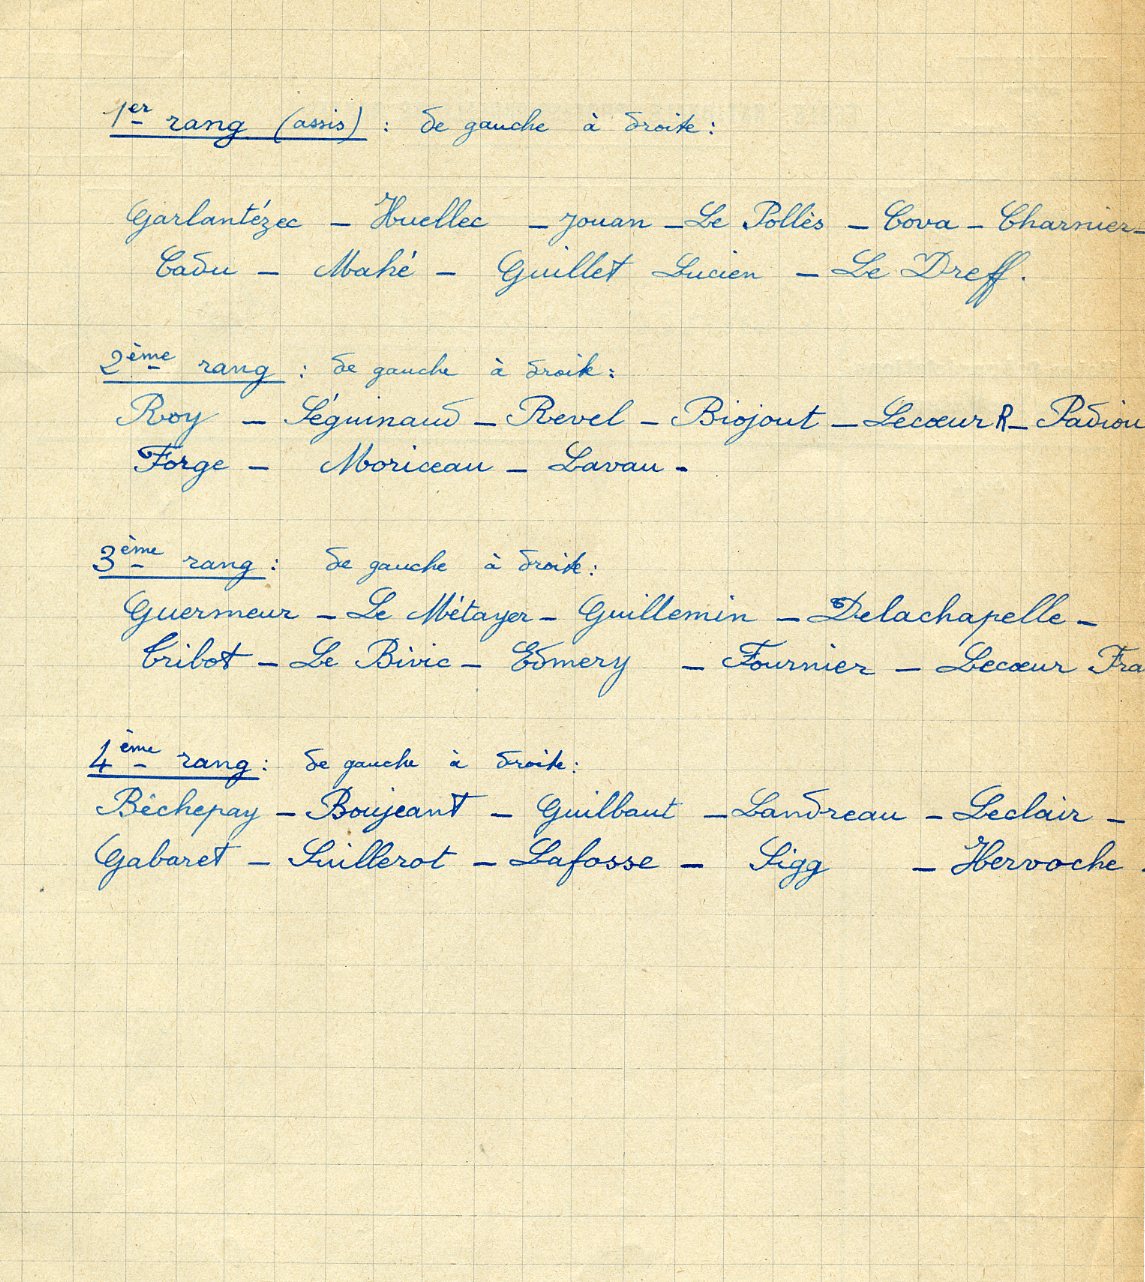 1er rang (assis) : de gauche à droite :
Garlantézec – Huellec – Jouan – Le Pollès – Cova – Charnier –
Cadu – Mahé – Guillet Lucien – Le Dreff.
2ème rang : de gauche à droite :
Roy – Séguinaud – Revel – Biojout – Lecœur R – Padiou
Forge – Moriceau – Lavau –
3ème rang : de gauche à droite :
Guermeur – Le Métayer – Guillemin – Delachapelle –
Tribot – Le Bivic – Edmery – Fournier – Lecœur Fra
4ème rang : de gauche à droite :
Béchepay – Boujeant – Guilbaut – Landreau – Leclair –
Gabaret – Suillerot – Lafosse – Sigg – Hervoche.